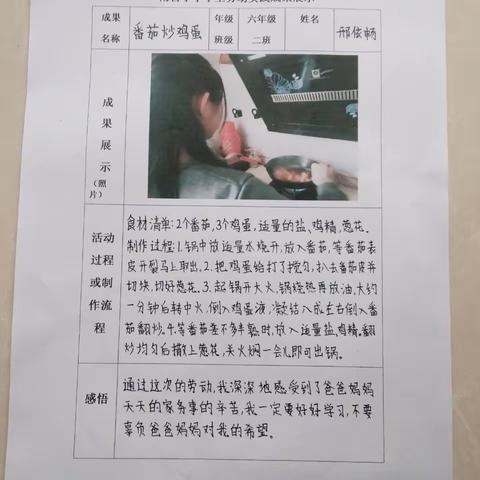 成果名称 番茄炒鸡蛋 年级班级 六年级二班 姓名 邢依畅
成果展示(照片)
活动过程或制作流程
食材清单:2个番茄,3个鸡蛋,适量的盐、鸡精,葱花.
制作过程:1.锅中放适量水烧开,放入番茄,等番茄表
皮开裂马上取出。2.把鸡蛋给打了搅匀,扒去番茄皮并
切块,切好葱花。3.起锅开大火,锅烧热再放油,大约
一分钟后转中火,倒入鸡蛋液,凝结八成左右倒入番
茄翻炒。4.等番茄差不多半熟时,放入适量盐,鸡精。翻
炒均匀后撒上葱花,关火焖一会儿即可出锅。
感悟
通过这次的劳动,我深深地感受到了爸爸妈妈
天天的家务事的辛苦,我一定要好好学习,不要
辜负爸爸妈妈对我的希望。